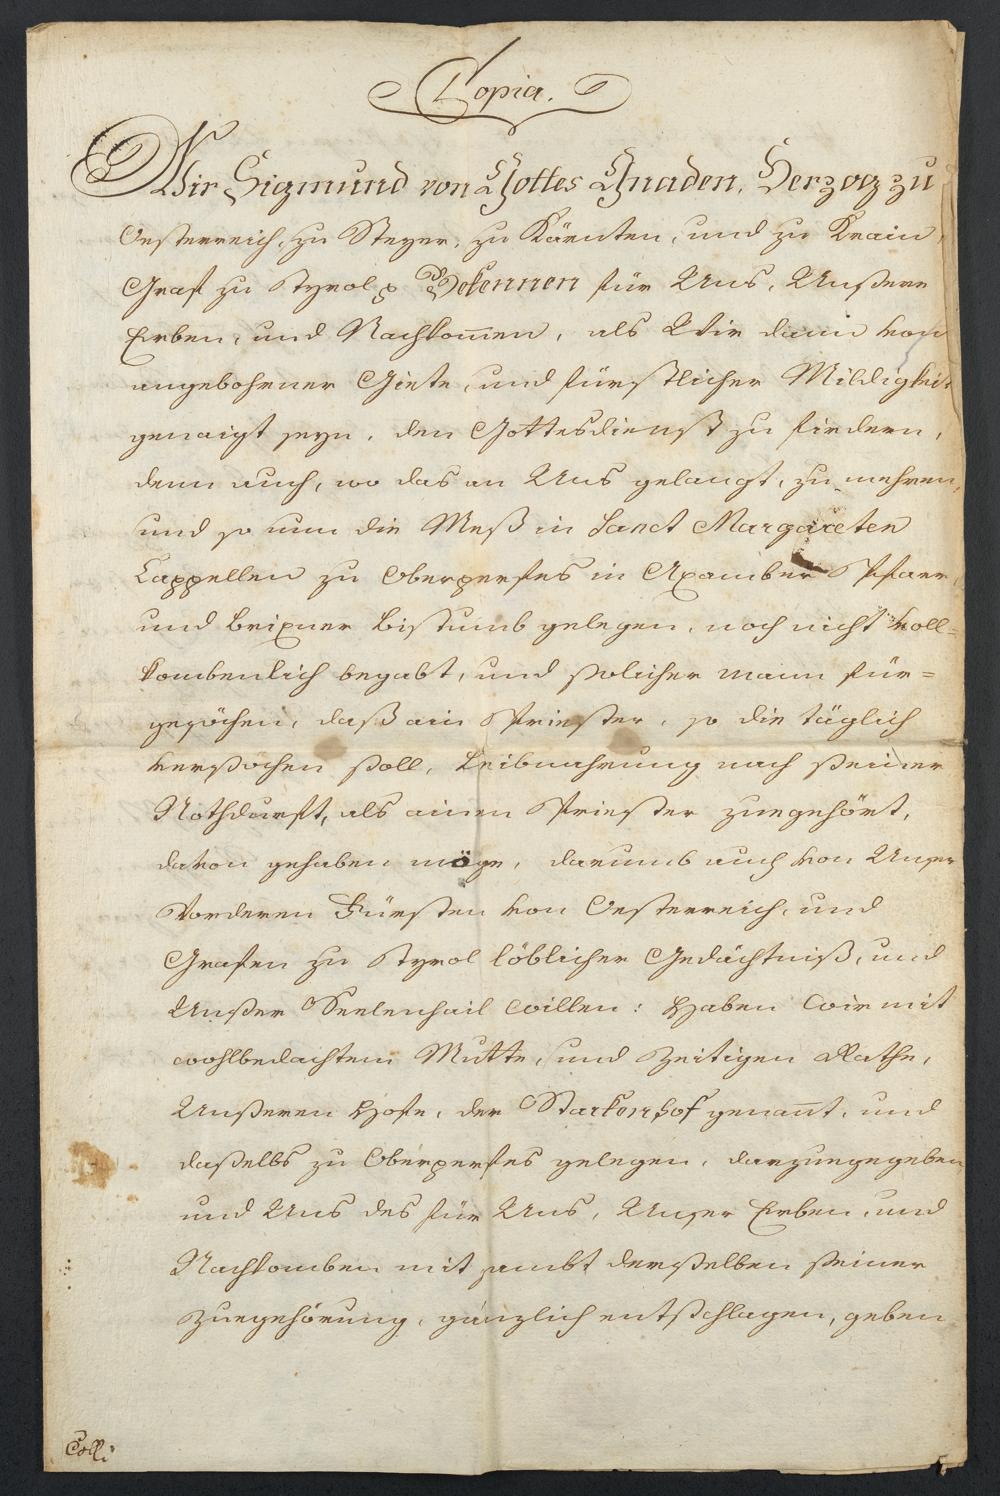 Copia.
Wir Sigmund von Gottes Gnaden, Herzog zu
Oesterreich, zu Steyer, zu Kärnten, und zu Krain,
Graf zu Tyrol p Bekennen für Uns, Unßere
Erben, und Nachkom̅en, als Wir dann von
angebohrner Giete, und fürstlicher Mildigkeit
genaigt seyn, den Gottesdienst zu firdern,
denn auch, wo das an Uns gelangt, zu mehren,
und so nun die Meß in Sanct Margareten
Cappellen zu Oberperfes in Axamber Pfarr,
und Brixner Bistumb gelegen, noch nicht voll=
kombenlich begabt, und solicher mann für=
gesöchen, daß ain Priester, so die täglich
versöchen soll, Leibnahrung nach seiner
Nothdurft, als ainen Priester zuegehört,
davon gehaben möge, darumb auch von Unser
Vorderen Fürsten von Oesterreich, und
Grafen zu Tyrol löblicher Gedächtniß, und
Unßer Seelenhail willen: Haben Wir mit
wohlbedachtem Mutte, und Zeitigen Rathe,
Unßeren Hofe, der Starkenhof genan̅t, und
daßelbs zu Oberperfes gelegen, darzuegegeben
und Uns des für Uns, Unser Erben, und
Nachkomben mit sambt derselben seiner
Zuegehörung, gänzlich entschlagen, geben
Colli